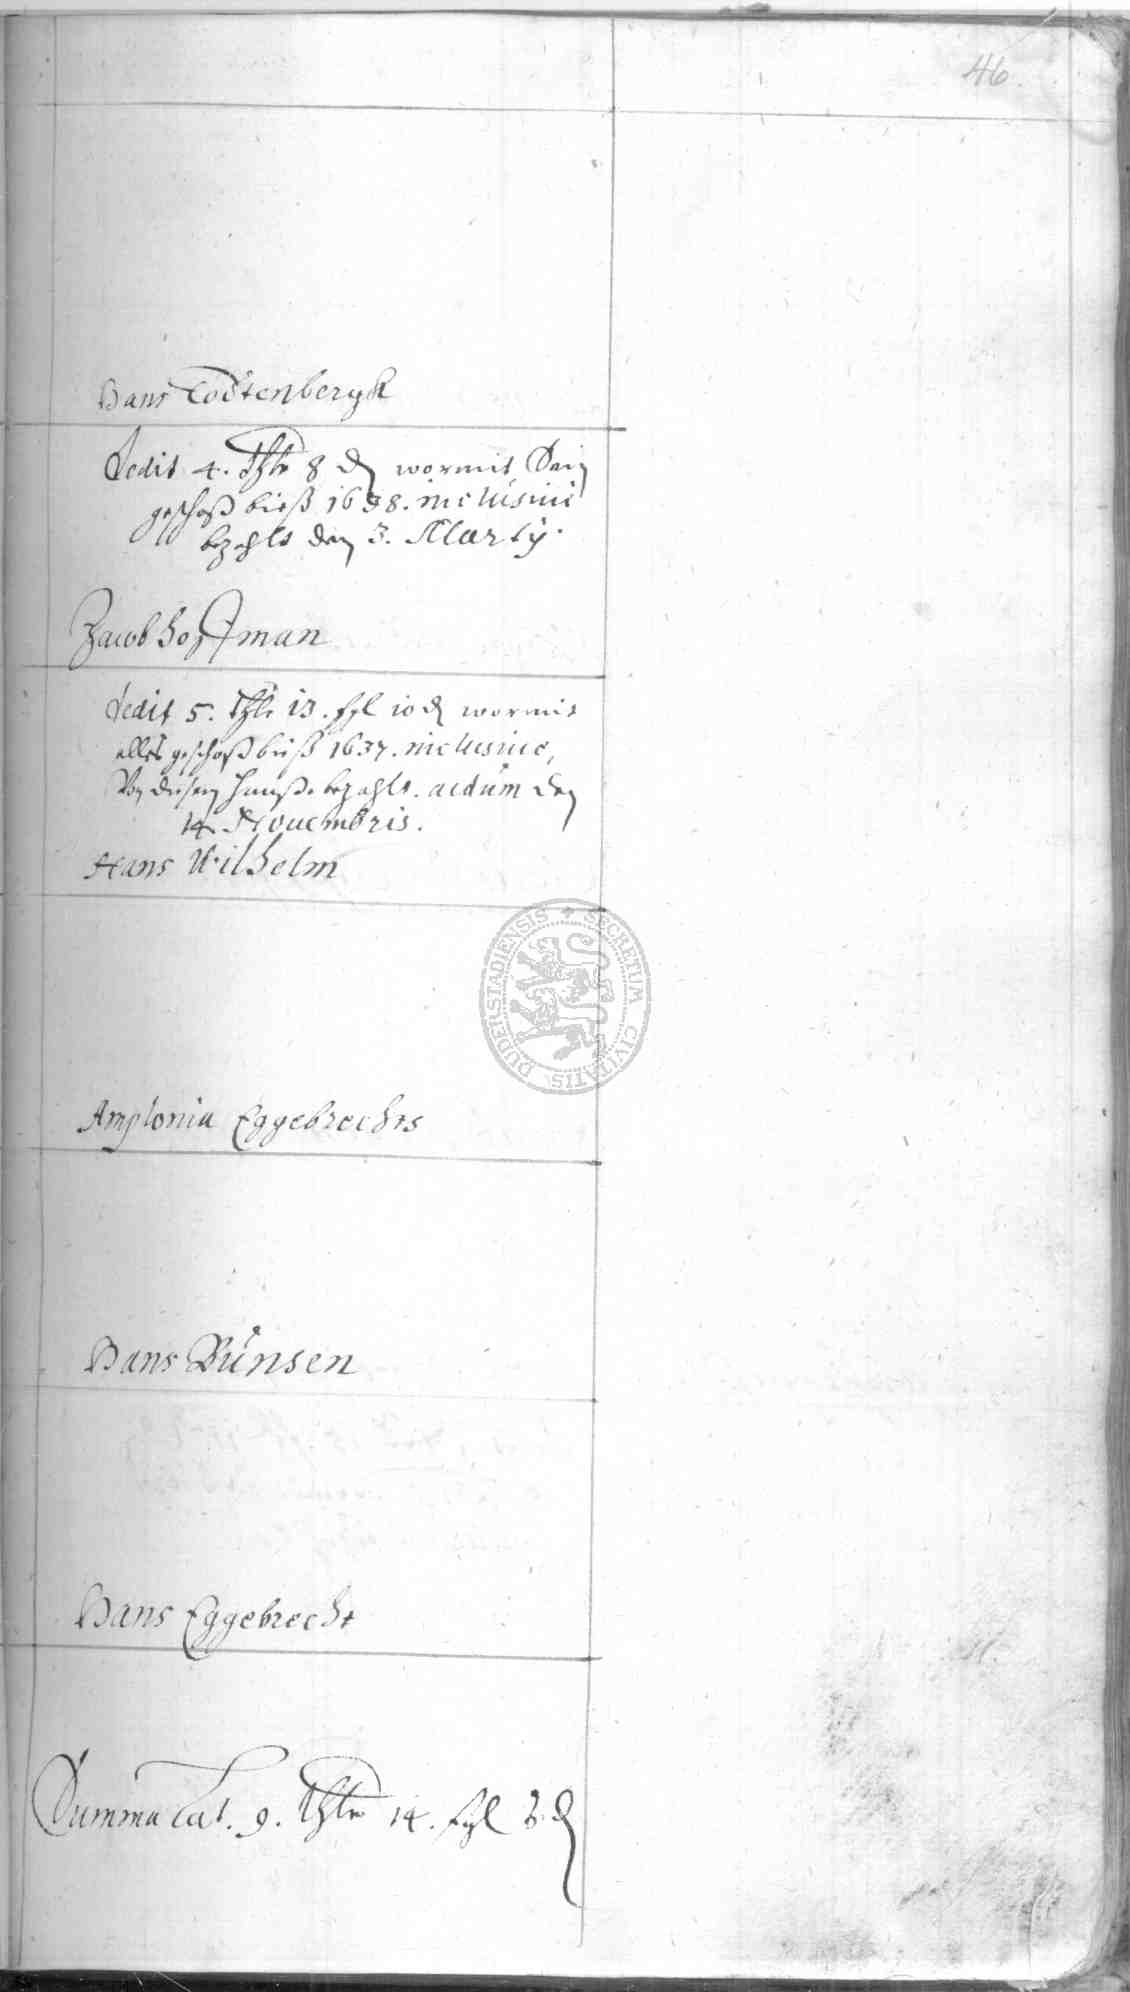 46
Hans Todtenbergk
dedit 4. Thlr 8 d wormit Sein
geschoß bieß 1638. inclusiue
bezahlt den 3. Martij.
Jacob Hoffman
dedit 5. Thlr 13. ßgl 10 d wormit
alles geschoß bieß 1637. inclusiue,
Von diesem Hauße bezahlt. actum den
14. Nouembris.
Hans Wilhelm
SECRETUM CIVITATIS DUDERSTADIENSIS
Amplonia Eggebrechts
Hans Bünsen
Hans Eggebrecht
Summa Lat. 9. Thlr 14. ßgl d